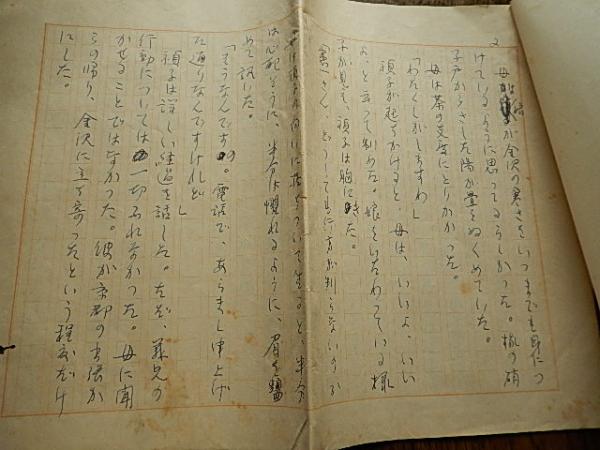 2
母は禎子が金沢の寒さをいつまでも身につ
けているように思ってるらしかった。縁の硝
子戸からさした陽が畳をぬくめていた。
母は茶の支度にとりかかった。
「わたくしがしますわ」
禎子が起ちかけると、母は、いいよ、いい
よ、と言って制めた。娘をいたわっている様
子が見え、禎子は胸に来た。
「憲一さん、どうしても行方が判らないのか
は心配そうに、半分は憚れるように、眉を
めて訊いた。
「そうなんです。電話で、あらまし申上げ
た通りなんですけれど」
禎子は詳しい経過を話した。ただ、義兄の
行動については一切ふれなかった。母に聞
かせることではなかった。彼が京都の出張か
らの帰り、金沢に立ち寄ったという程度だけ
にした。